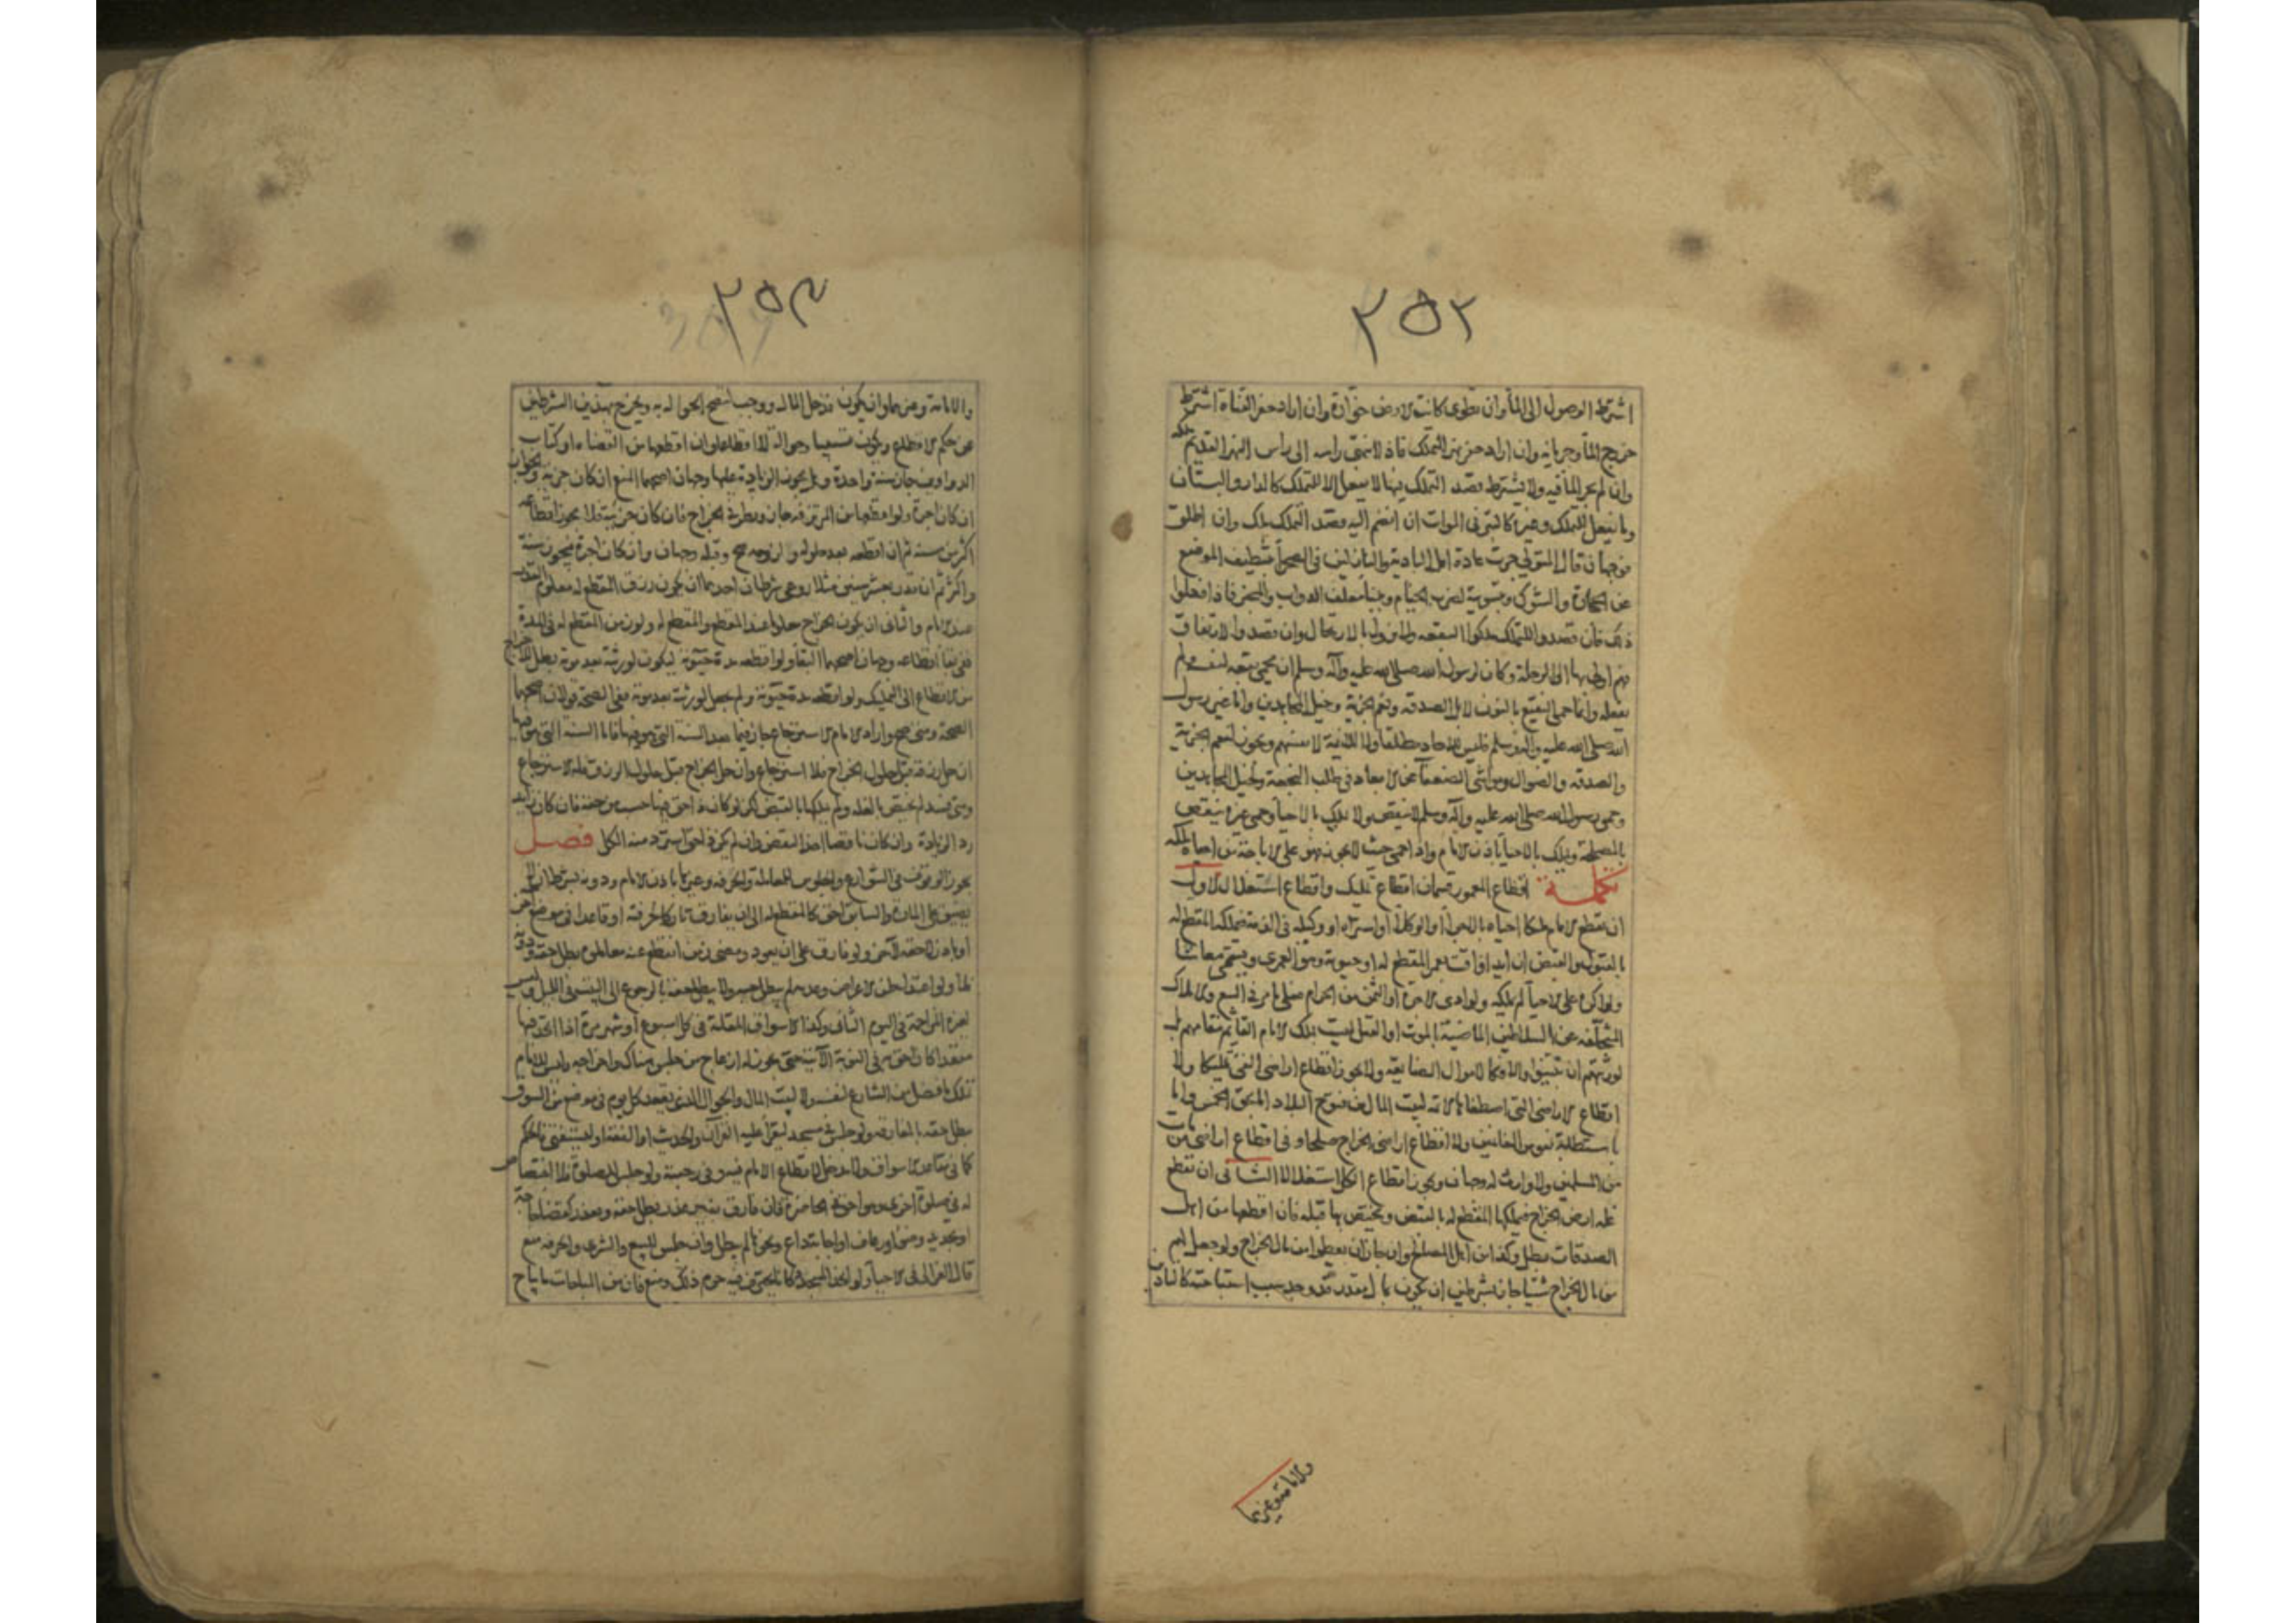 ٢٥٢
اشترط الوصول الى الماء وان تطوى كانت الارض خوارة وان اراد حفر القناة اشترط
خروج الماء وجريانه وان اراد حفر نهر للتملك فاذا انتهى راسه الى راس النهر القديم ملكه
وان لم يجر الماء فيه ولا يشترط قصد التملك فيما لا يفعل الا للتملك كالدار والبستان
وما يفعل للتملك وغيره كالبئر في الموات ان انضم اليه قصد التملك ملك وان اطلق
فوجهان قال المتولي جرت عادة اهل البادية والنازلين في الصحراء بتنظيف الموضع
عن الحجارة والشوك وتسوية لضرب الخيام وبناء معلف الدواب والخبز فاذا فعلوا
ذلك فان قصدوا التملك ملكوا البقعة وان تولوا بالارتحال وان قصدوا الارتفاق
فهم اولى بها الى الرحلة وكان لرسول الله صلى الله عليه وآله وسلم ان يحمي بقعة لنفسه ولم
يفعله وانما حمى النقيع بالنون لابل الصدقة ونعم الجزية وخيل المجاهدين واما غير رسول
الله صلى الله عليه وآله وسلم فليس للآحاد مطلقا ولا للائمة لانفسهم ويجوز لنعم الجزية
والصدقة والضوال ومواشي الضعفاء عن الابعاد في طلب النجعة وخيل المجاهدين
وحمى رسول الله صلى الله عليه وآله وسلم لا ينقض ولا يملك بالاحياء وحمى غيره ينقض
بالمصلحة ويملك بالاحياء باذن الامام واذا حمى حيث لا يجوز فهو على الاباحة من احياه ملكه
تكملة اقطاع المعمور قسمان اقطاع تمليك واقطاع استغلال الاول
ان يقطع الامام ملكا احياه بالاجراء او الوكلاء او اشتراه او وكيله في الذمة فيملكه المقطع له
بالقبول والقبض ان ابد او اقت بعمر المقطع له او حيوته وهو العمرى ويسمى معاشا
ولو اكره على الاحياء لم يملكه ولو ادى الاجرة او الثمن من الحرام فعلى ما مر في البيع والاملاك
المتخلفة عن السلاطين الماضية بالموت او القتل ليست بملك الامام القائم مقامهم بل
لورثتهم ان تبينوا والا فكالاموال الضايعة ولا يجوز اقطاع اراضي الفيء تمليكا ولا
اقطاع الاراضي التي اصطفاها الائمة لبيت المال من فتوح البلاد اما بحق الخمس واما
باستطابة نفوس الغانمين ولا اقطاع اراضي الخراج صلحا وفي اقطاع اراضي من مات
من المسلمين ولا وارث له وجهان ويجوز اقطاع الكل استغلالا الثاني ان يقطع
غلة ارض الخراج فيملكها المقطع له بالقبض ويختص بها قبله فان اقطعها من اهل
الصدقات بطل وكذا من اهل المصالح وان جاز ان يعطوا من مال الخراج ولو جعل لهم
من مال الخراج شيئا جاز بشرطين ان يكون بمال مقدر قد وجد سبب استباحته كالتاذين
والامامة وغيرهما
٢٥٣
والامامة وغيرهما وان يكون قد حل المال ووجب لتصح الحوالة به ويخرج بهذين الشرطين
عن حكم الاقطاع ويكون تسبيبا وحوالة لا اقطاعا وان اقطعها من القضاة او كتاب
الدواوين جاز سنة واحدة وهل يجوز الزيادة عليها وجهان اصحهما المنع ان كان جزية والجواز
ان كان اجرة ولو اقطعها من المرتزقة جاز وينظر في الخراج فان كان جزية فلا يجوز اقطاعه
اكثر من سنة ثم ان اقطعه بعد حلوله ولزومه صح وقبله وجهان وان كان اجرة فيجوز سنة
واكثر ثم ان قدر بعشر سنين مثلا روعي شرطان احدهما ان يكون رزق المقطع له معلوم القدر
عند الامام والثاني ان يكون الخراج معلوما عند المقطع والمقطع له ولو زمن المقطع له في المدة
ففي بقاء اقطاعه وجهان اصحهما البقاء ولو اقطعه مدة حيوته ليكون لورثته بعد موته بطل لاخراجه
من الاقطاع الى التمليك ولو اقطعه مدة حيوته ولم يجعل لورثته بعد موته ففي الصحة قولان اصحهما
الصحة ومتى صح واراد الامام الاسترجاع جاز فيما بعد السنة التي هو فيها فاما السنة التي هو فيها
ان حل رزقه قبل حلول الخراج فلا استرجاع وان حل الخراج قبل حلول الرزق فله الاسترجاع
ومتى فسد لم يختص بالغلة ولم يملكها بالقبض لكن لو كان ذا حق فيها حسب من حقه فان كان زايدا
رد الزيادة وان كان ناقصا اخذ النقص وان لم يكن ذا حق استرد منه الكل فصل
يجوز الوقوف في الشوارع والجلوس للمعاملة والحرفة وغيرها باذن الامام ودونه بشرط ان لا
يضيق على المارة والسابق احق كالمقطع له الى ان يفارق تاركا للحرفة او قاعدا في موضع آخر
او باذن لاحقه لآخر ولو فارق على ان يعود ومضى زمن انقطع عنه معاملوه بطل حقه
ولو اعتدا لعذر لم يبطل حقه ولا يبطل حقه بالرجوع الى البيت في الليل وليس
لغيره المزاحمة في اليوم الثاني وكذا الاسواق المقامة في كل اسبوع او شهر مرة اذا اتخذ فيها
مقعدا كان احق به في النوبة الآتية حتى يجوز له ازعاج من جلس هناك واخراجه وليس للامام
تملك ما فضل من الشارع لنفسه ولا لبيت المال والجوال الذي يقعد كل يوم في موضع من السوق
يبطل حقه بالمفارقة ولو جلس في مسجد ليقرأ عليه القرآن والحديث او الفقه او ليستفتى فالحكم
كما في مقاعد الاسواق ولا مدخل لاقطاع الامام فيه وفي رحبته ولو جلس للصلوة فلا اختصاص
له في صلوة اخرى وهو احق في الحاضرة فان فارق بغير عذر بطل حقه وبعذر كقضاء حاجة
او تجديد وضوء او رعاف او اجابة داع ونحوها لم يبطل وان جلس للبيع والشرى والحرفة منع
قال الغزالي في الاحياء ولو اتخذ المسجد دكانا ليحترف فيه حرم ذلك ومنع فان من المباحات ما يباح